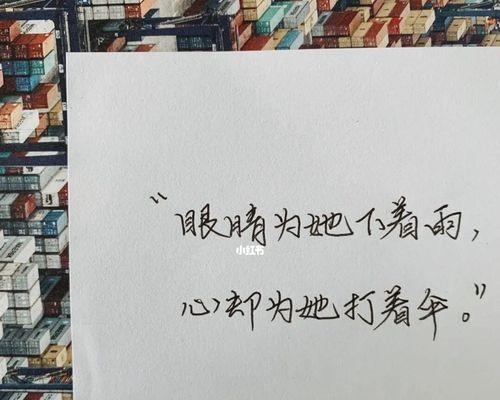 “眼睛为她下着雨，
小红书
心却为她打着伞。”